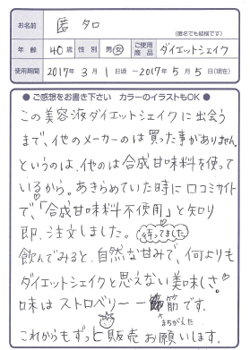 お名前
匿 タロ
(匿名でも結構です)
年齢 40歳 性別 男・女 ご使用商品 ダイエットシェイク
使用期間 2017年 3月 1日頃 ～2017年 5月 5日(現在)
● ご感想をお書き下さい カラーのイラストもOK ●
この美容液ダイエットシェイクに出会う
まで、他のメーカーのは買った事がありません。
というのは、他のは合成甘味料を使って
いるから。あきらめていた時に口コミサイト
で、「合成甘味料不使用」と知り
即、注文しました。 待ってました
飲んでみると、自然な甘みで、何よりも
ダイエットシェイクと思えない美味しさ。
味はストロベリー一筋です。
まちがえた
これからもずっと販売お願いします。